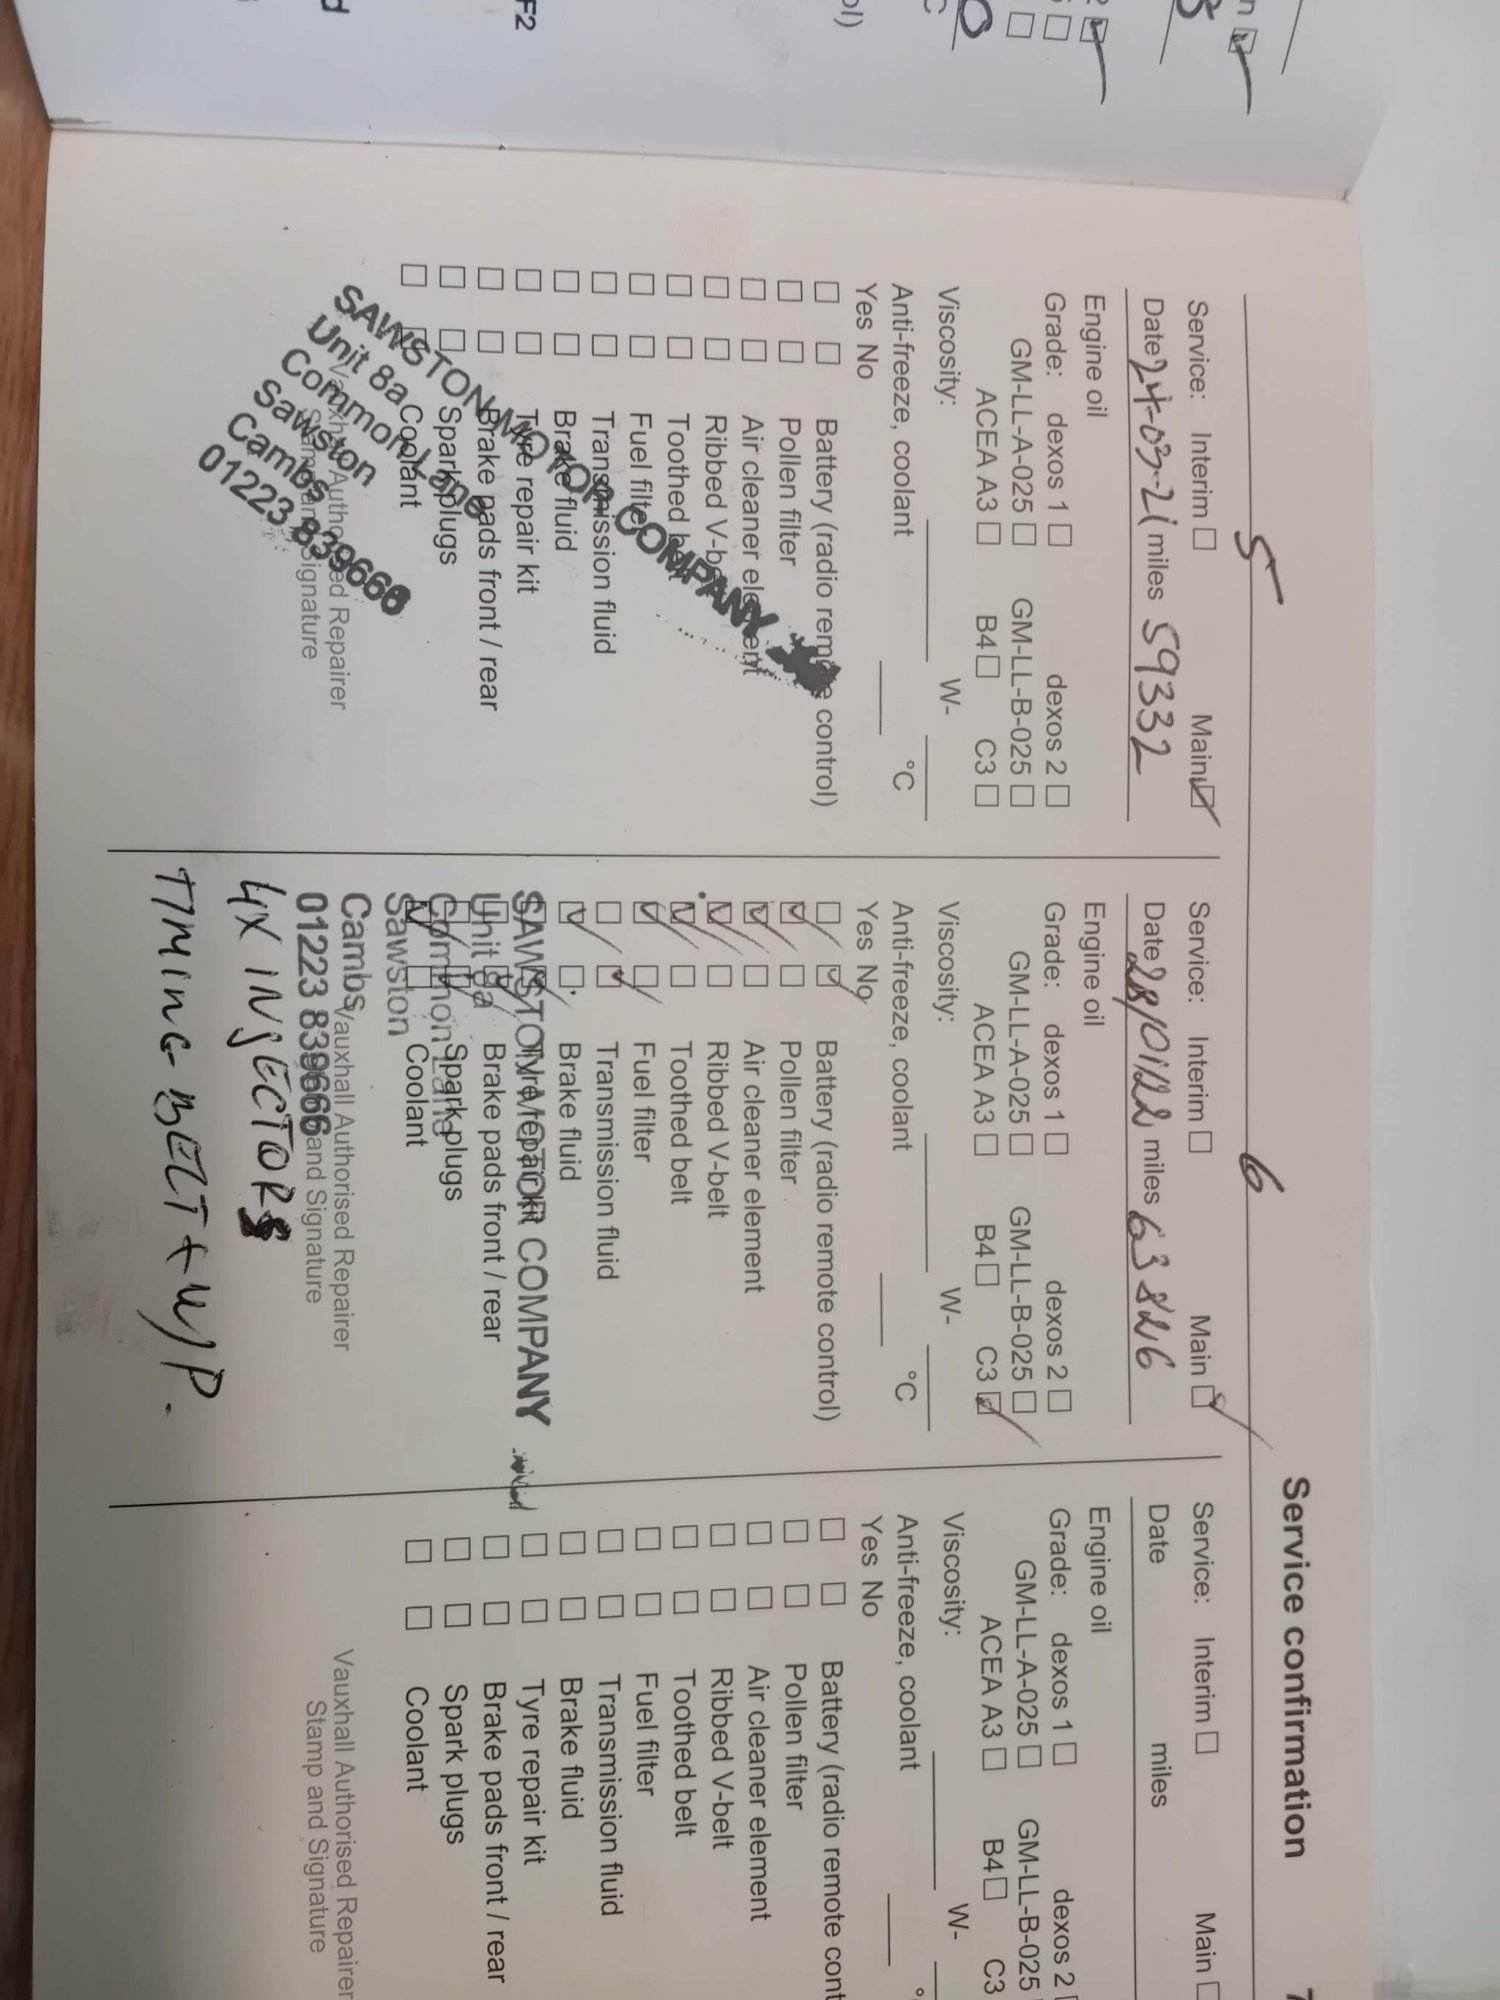 Service confirmation
5
Service: Interim ☐ Main ☑
Date 24-03-21 miles 59332
Engine oil
Grade: dexos 1 ☐ dexos 2 ☐
GM-LL-A-025 ☐ GM-LL-B-025 ☐
ACEA A3 ☐ B4 ☐ C3 ☐
Viscosity: W-
Anti-freeze, coolant °C
Yes No
☐ ☐ Battery (radio remote control)
☐ ☐ Pollen filter
☐ ☐ Air cleaner element
☐ ☐ Ribbed V-belt
☐ ☐ Toothed belt
☐ ☐ Fuel filter
☐ ☐ Transmission fluid
☐ ☐ Brake fluid
☐ ☐ Tyre repair kit
☐ ☐ Brake pads front / rear
☐ ☐ Spark plugs
☐ ☐ Coolant
Vauxhall Authorised Repairer
Stamp and Signature
SAWSTON MOTOR COMPANY
Unit 8a
Common Lane
Sawston
Cambs
01223 839666
6
Service: Interim ☐ Main ☑
Date 28/01/22 miles 63826
Engine oil
Grade: dexos 1 ☐ dexos 2 ☐
GM-LL-A-025 ☐ GM-LL-B-025 ☐
ACEA A3 ☐ B4 ☐ C3 ☑
Viscosity: W-
Anti-freeze, coolant °C
Yes No
☐ ☑ Battery (radio remote control)
☑ ☐ Pollen filter
☑ ☐ Air cleaner element
☑ ☐ Ribbed V-belt
☑ ☐ Toothed belt
☑ ☐ Fuel filter
☐ ☑ Transmission fluid
☑ ☐ Brake fluid
☐ ☑ Tyre repair kit
☐ ☑ Brake pads front / rear
☐ ☑ Spark plugs
☑ ☐ Coolant
Vauxhall Authorised Repairer
Stamp and Signature
SAWSTON MOTOR COMPANY
Unit 8a
Common Lane
Sawston
Cambs
01223 839666
4X INJECTORS
TIMING BELT + W/P.
Service: Interim ☐ Main ☐
Date miles
Engine oil
Grade: dexos 1 ☐ dexos 2
GM-LL-A-025 ☐ GM-LL-B-025
ACEA A3 ☐ B4 ☐ C3
Viscosity: W-
Anti-freeze, coolant
Yes No
☐ ☐ Battery (radio remote cont
☐ ☐ Pollen filter
☐ ☐ Air cleaner element
☐ ☐ Ribbed V-belt
☐ ☐ Toothed belt
☐ ☐ Fuel filter
☐ ☐ Transmission fluid
☐ ☐ Brake fluid
☐ ☐ Tyre repair kit
☐ ☐ Brake pads front / rear
☐ ☐ Spark plugs
☐ ☐ Coolant
Vauxhall Authorised Repairer
Stamp and Signature
F2